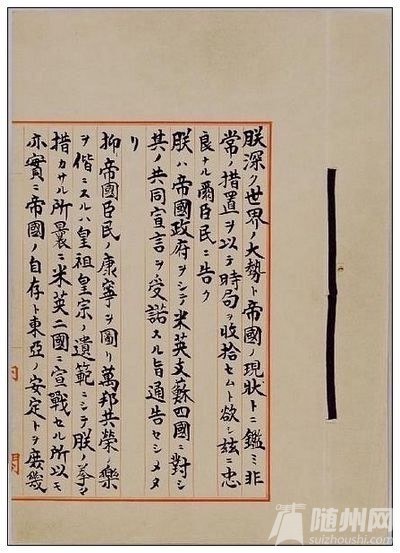 朕深ク世界ノ大勢ト帝國ノ現状トニ鑑ミ非
常ノ措置ヲ以テ時局ヲ收拾セムト欲シ茲ニ忠
良ナル爾臣民ニ告ク
朕ハ帝國政府ヲシテ米英支蘇四國ニ對シ
其ノ共同宣言ヲ受諾スル旨通告セシメタ
リ
抑帝國臣民ノ康寧ヲ圖リ萬邦共榮ノ樂
ヲ偕ニスルハ皇祖皇宗ノ遺範ニシテ朕ノ拳々
措カサル所曩ニ米英二國ニ宣戰セル所以モ
亦實ニ帝國ノ自存ト東亞ノ安定トヲ庶幾
内閣
随州网
suizhoushi.com